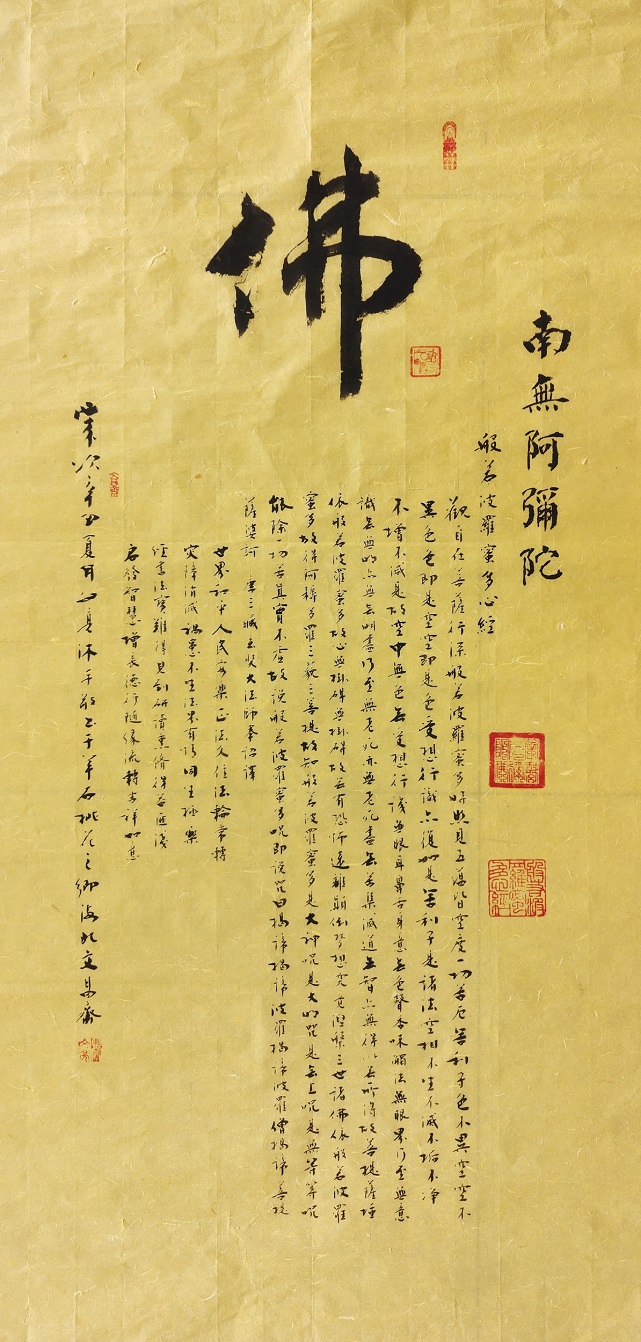 佛
南無阿彌陀
般若波羅蜜多心經
觀自在菩薩行深般若波羅蜜多時照見五蘊皆空度一切苦厄舍利子色不異空空不
異色色即是空空即是色受想行識亦復如是舍利子是諸法空相不生不滅不垢不净
不增不減是故空中無色無受想行識無眼耳鼻舌身意無色聲香味觸法無眼界乃至無意
識界無無明亦無無明盡乃至無老死亦無老死盡無苦集滅道無智亦無得以無所得故菩提薩埵
依般若波羅蜜多故心無掛碍無掛碍故無有恐怖遠離顛倒夢想究竟涅槃三世諸佛依般若波羅
蜜多故得阿耨多羅三藐三菩提故知般若波羅蜜多是大神咒是大明咒是無上咒是無等等咒
能除一切苦真實不虛故說般若波羅蜜多咒即說咒曰揭諦揭諦波羅揭諦波羅僧揭諦菩提
薩婆訶 唐三藏玄奘大法師奉詔譯
世界和平人民安樂正法久住法輪常轉
灾障消滅禍患不生法界有情同生極樂
經書法寶難得見
啓發智慧增長德行隨緣流轉吉祥如意
歲次辛丑夏月